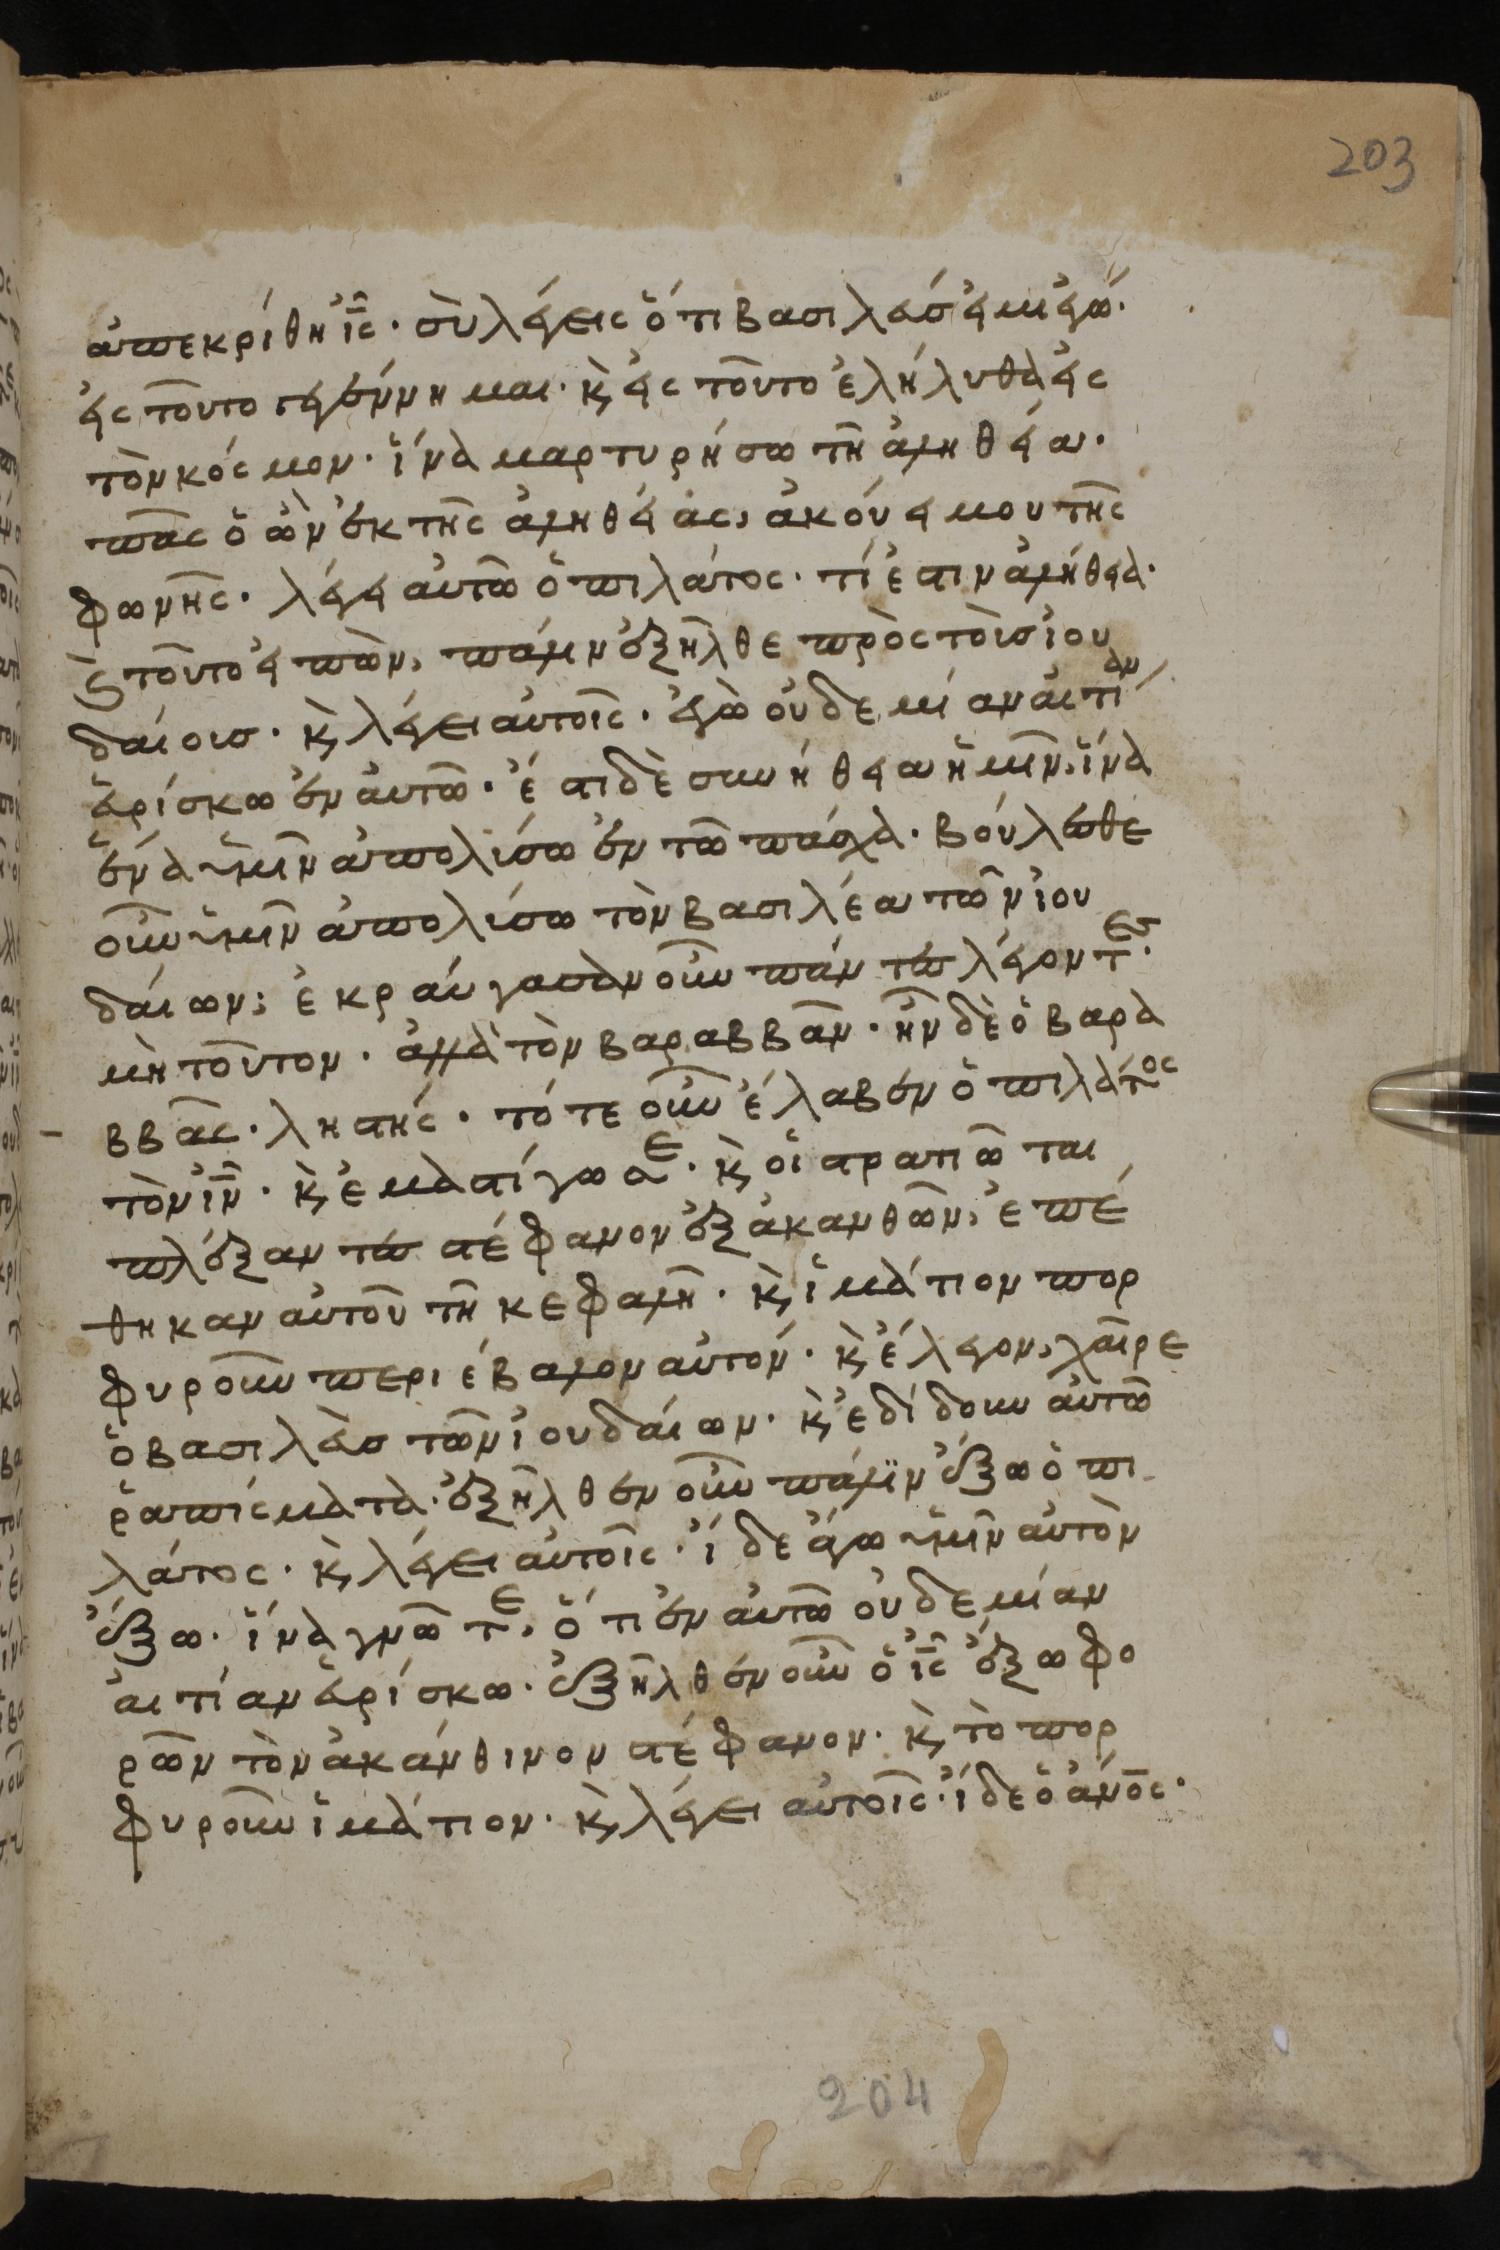 203
ἀπεκρίθη ἰς̅· σὺ λέγεις ὅτι βασιλεύς εἰμι ἐγώ·
εἰς τοῦτο γεγέννημαι· κ, εἰς τοῦτο ἐλήλυθα εἰς
τὸν κόσμον· ἵνα μαρτυρήσω τῆ ἀληθεία·
πᾶς ὁ ὢν ἐκ τῆς ἀληθείας, ἀκούει μου τῆς
φωνῆς· λέγει αὐτῶ ὁ πιλάτος· τί ἐστιν ἀλήθεια·
κ, τοῦτο εἰπὼν, πάλιν ἐξῆλθε πρὸς τοὺς ἰου
δαίους· κ, λέγει αὐτοῖς· ἐγὼ οὐδεμίαν αἰτίαν
εὑρίσκω ἐν αὐτῶ· ἔστι δὲ συνήθεια ἡμῖν, ἵνα
ἕνα ὑμῖν ἀπολύσω ἐν τῶ πάσχα· βούλεσθε
οὖν ὑμῖν ἀπολύσω τὸν βασιλέα τῶν ἰου
δαίων; ἐκραύγασαν οὖν πάντες λέγοντες·
μὴ τοῦτον· ἀλλὰ τὸν βαραββᾶν· ἦν δὲ ὁ βαρα
ββᾶς· ληστής· τότε οὖν ἔλαβεν ὁ πιλάτος
τὸν ἰν̅· κ, ἐμαστίγωσε· κ, οἱ στρατιῶται
πλέξαντες στέφανον ἐξ ἀκανθῶν, ἐπέ
θηκαν αὐτοῦ τῆ κεφαλῆ· κ, ἱμάτιον πορ
φυροῦν περιέβαλον αὐτόν· κ, ἔλεγον, χαῖρε
ὁ βασιλεὺς τῶν ἰουδαίων· κ, ἐδίδουν αὐτῶ
ῥαπίσματα· ἐξῆλθεν οὖν πάλϊν ἔξω ὁ πι
λάτος· κ, λέγει αὐτοῖς· ἴδε ἄγω ὑμῖν αὐτὸν
ἔξω· ἵνα γνῶτε, ὅτι ἐν αὐτῶ οὐδεμίαν
αἰτίαν εὑρίσκω· ἐξῆλθεν οὖν ὁ ἰς̅ ἔξω φο
ρῶν τὸν ἀκάνθινον στέφανον· κ, τὸ πορ
φυροῦν ἱμάτιον· κ, λέγει αὐτοῖς· ἴδε ὁ ἄνο̅ς·
204